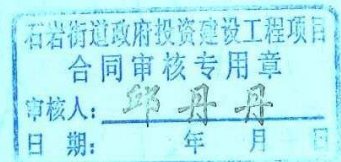 石岩街道政府投资建设工程项目
合同审核专用章
审核人：邱丹丹
日期：　年　月　日